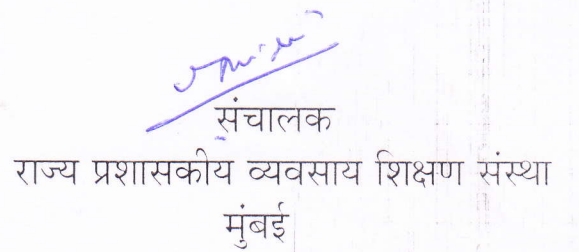 संचालक
राज्य प्रशासकीय व्यवसाय शिक्षण संस्था
मुंबई